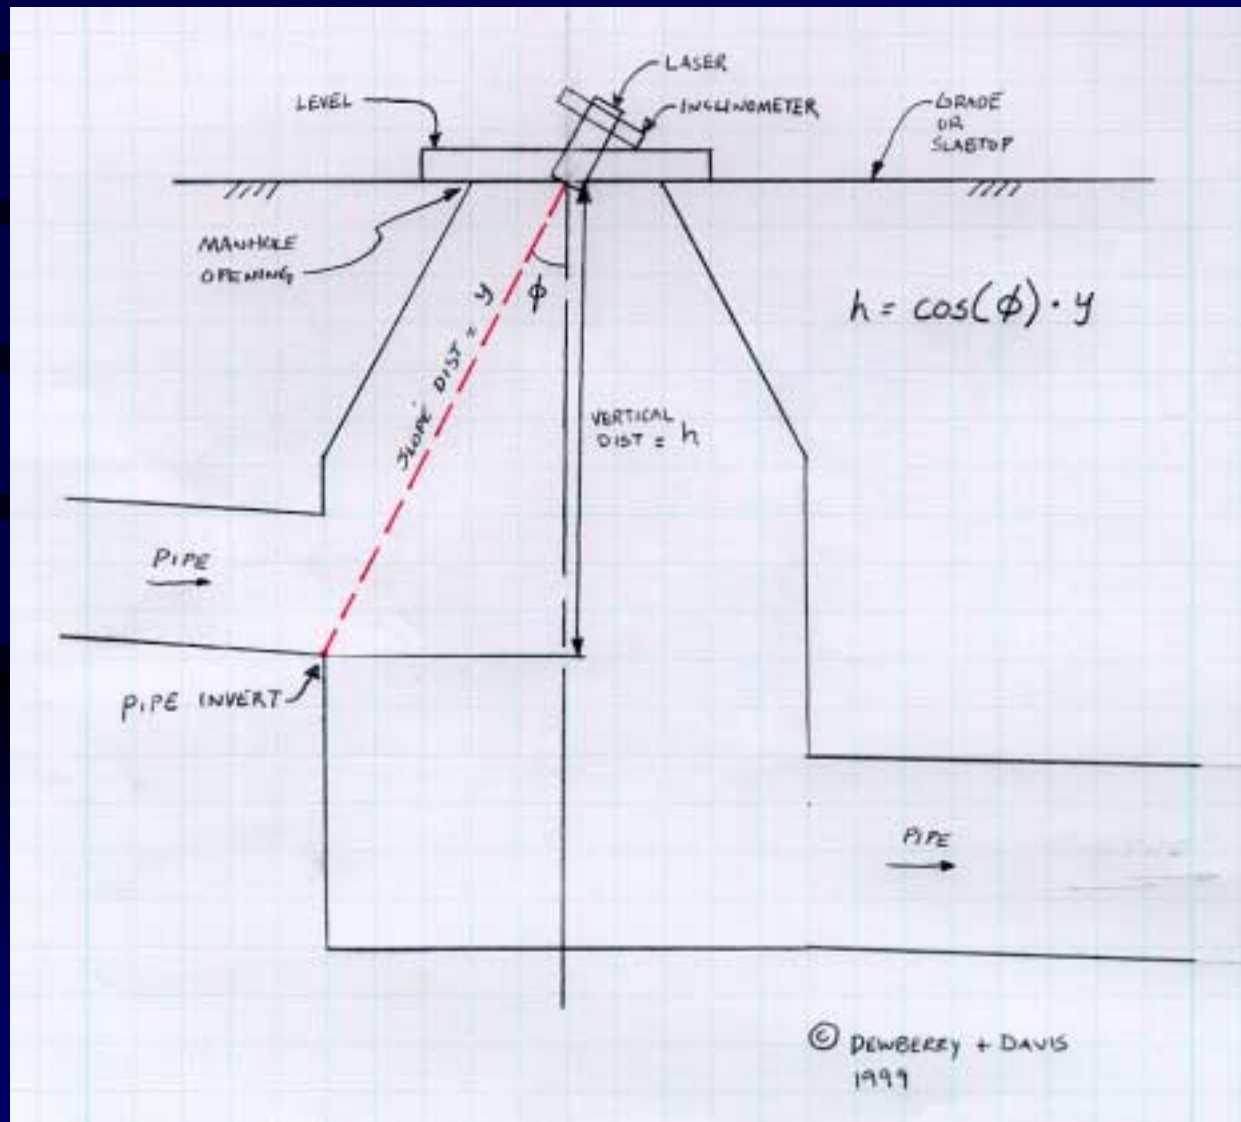 LASER
LEVEL
INCLINOMETER
GRADE
OR
SLABTOP
MANHOLE
OPENING
h = cos(ϕ) · y
SLOPE DIST = y
ϕ
VERTICAL
DIST = h
PIPE
PIPE INVERT
PIPE
© DEWBERRY + DAVIS
1999